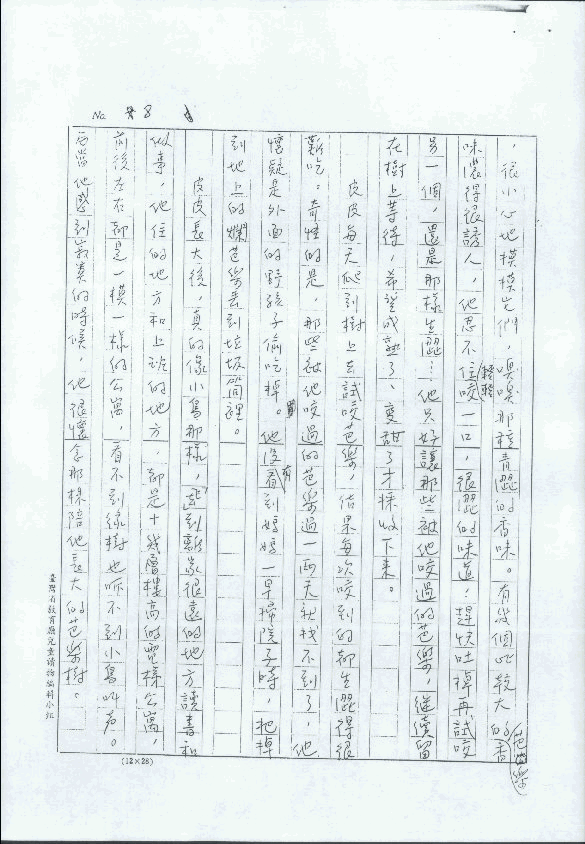 No. 8
，很小心地摸摸它們，嗅嗅那種青澀的香味。有幾個比較大的香
芭樂
味濃得很誘人，他忍不住咬一口，很澀的味道，趕快吐掉再試咬
輕輕
另一個，還是那樣生澀…他只好讓那些被他咬過的芭樂，繼續留
在樹上等待，希望成熟了、變甜了才採收下來。
皮皮每天爬到樹上去試咬芭樂，結果每次咬到的都生澀得很
難吃。奇怪的是，那些被他咬過的芭樂過一兩天就找不到了，他
懷疑是外面的野孩子偷吃掉。他沒看到媽媽一早掃院子時，把掉
有
到地上的爛芭樂丟到垃圾筒裡。
皮皮長大後，真的像小鳥那樣，飛到離家很遠的地方讀書和
做事，他住的地方和上班的地方，都是十幾層樓高的電梯公寓，
前後左右都是一模一樣的公寓，看不到綠樹也聽不到小鳥叫声。
而當他感到寂寞的時候，他很懷念那棵陪他長大的芭樂樹。
臺灣省教育廳兒童讀物編輯小組
(12×28)